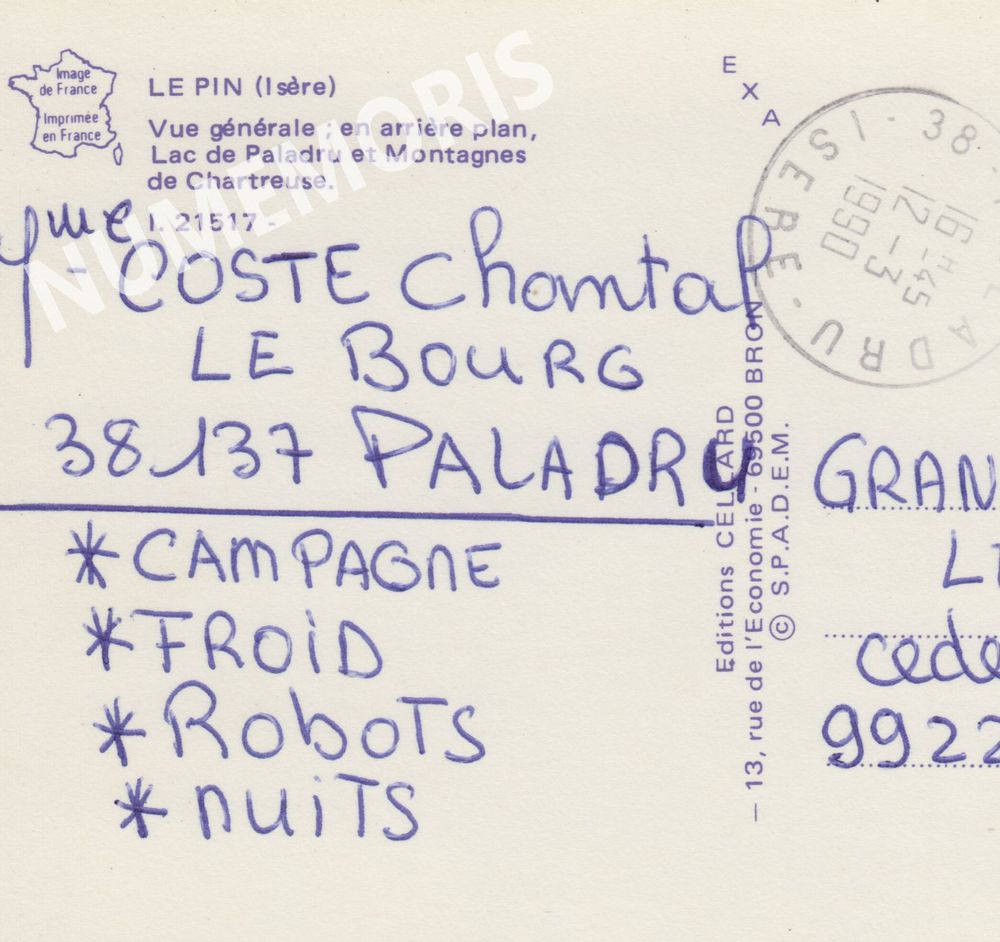 Image
de France
Imprimée
en France
LE PIN (Isère)
Vue générale ; en arrière plan,
Lac de Paladru et Montagnes
de Chartreuse.
I. 21517 -
NUMEMORIS
Mme COSTE Chantal
LE BOURG
38137 PALADRU
* CAMPAGNE
* FROID
* ROBOTS
* NUITS
EXA
Editions CELLARD
— 13, rue de l'Economie - 69500 BRON
© S.P.A.D.E.M.
38
ISERE
16 H 45
12 - 3
1990
PALADRU
GRAN
cede
9922